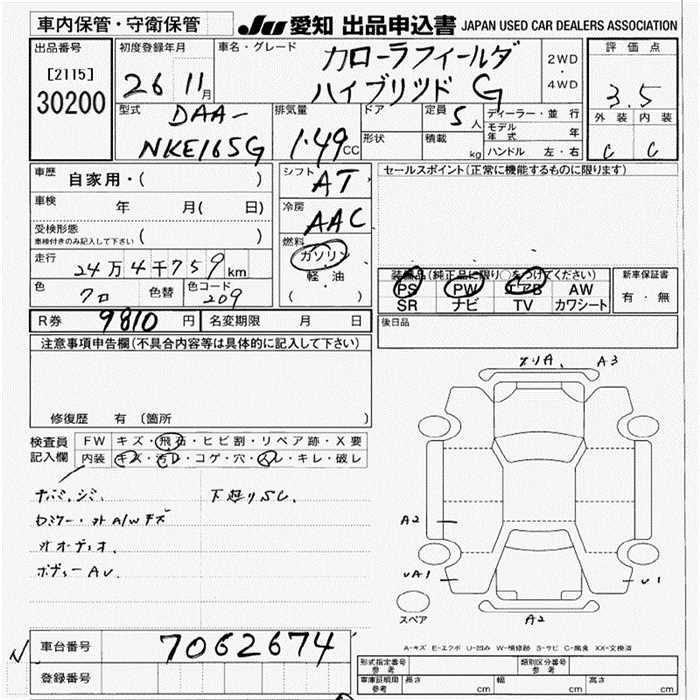 車内保管・守衛保管
JU 愛知 出品申込書 JAPAN USED CAR DEALERS ASSOCIATION
出品番号
[2115]
30200
初度登録年月
26 11月
車名・グレード
カローラフィールダ
ハイブリッド G
2WD
・
4WD
評価点
3.5
外装 内装
C C
型式
DAA-
NKE165G
排気量
1.49cc
ドア
形状
定員 5人
積載 kg
ディーラー・並行
モデル年式 年
ハンドル 左・右
車歴 自家用・( )
車検 年 月( 日)
受検形態
車検付きのみ記入して下さい ( )
走行 24万4千759km
色 クロ 色替 色コード 209
シフト AT
冷房 AAC
燃料
ガソリン
軽・油
( )
セールスポイント(正常に機能するものに限ります)
装備品(純正品に限り○をつけてください)
PS PW エアB AW
SR ナビ TV カワシート
新車保証書
有・無
R券 9810円 名変期限 月 日
後日品
注意事項申告欄(不具合内容等は具体的に記入して下さい)
修復歴 有 (箇所 )
検査員記入欄
FW キズ・飛石・ヒビ割・リペア跡・X要
内装 キズ・汚レ・コゲ・穴・スレ・キレ・破レ
下廻りSC.
A/Wキズ
オーディオ.
ボディーAU.
A3
A2
UA1
U1
A2
スペア
A-キズ E-エクボ U-凹み W-補修跡 S-サビ C-腐食 XX-交換済
車台番号 7062674
登録番号
型式指定番号 参考
類別区分番号 参考
車庫証明用 参考 長さ cm 幅 cm 高さ cm